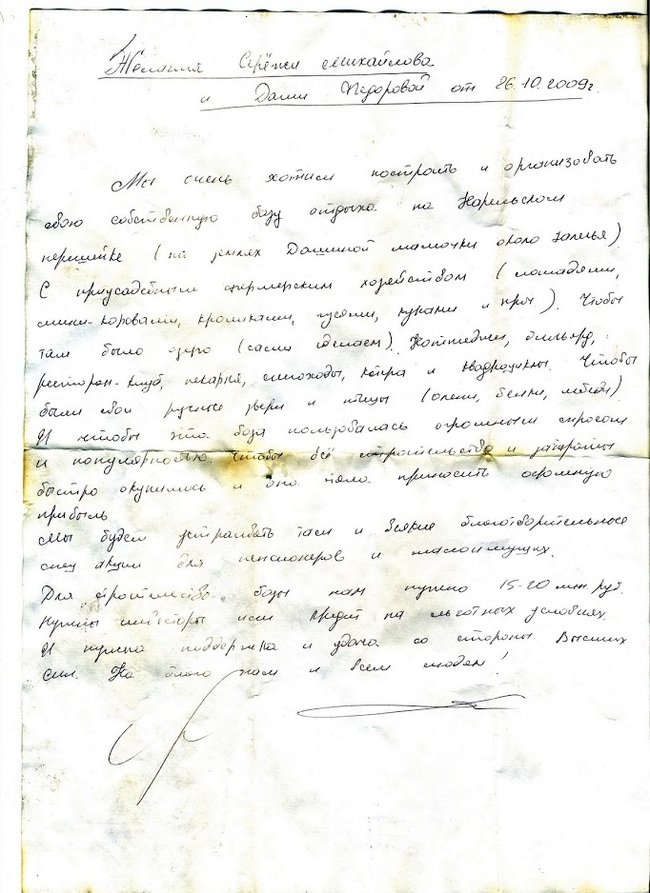 Желания Серёжи Михайлова
и Даши Федоровой от 26.10.2009г.
Мы очень хотим построить и организовать
свою собственную базу отдыха на Карельском
перешейке (на землях Дашиной мамочки около
С приусадебным фермерским хозяйством (лошадями,
мини-коровами, кроликами, гусями, курами и проч). Чтобы
там было озеро (сами сделаем). Коттеджи, бильярд,
ресторан-клуб, пекарня, снегоходы, катера и квадроциклы. Чтобы
были свои ручные звери и птицы (олени, белки, лебеди).
И чтобы эта база пользовалась огромным спросом
и популярностью. Чтобы всё строительство и затраты
быстро окупилось и она стала приносить огромную
прибыль.
Мы будем устраивать там и всякие благотворительные
спец акции для пенсионеров и малоимущих.
Для строительства базы нам нужно 15-20 млн. руб.
Нужны инвесторы или кредит на льготных условиях.
И нужна поддержка и удача со стороны Высших
Сил. На благо нам и всем людям!